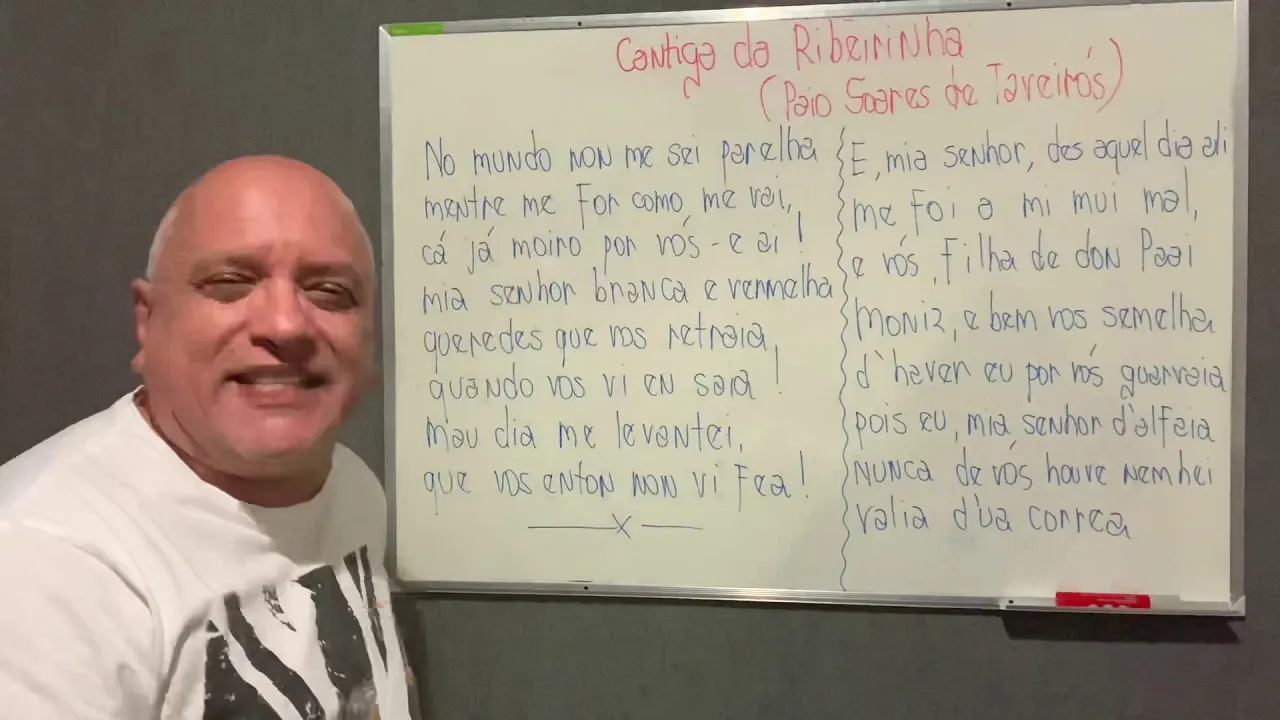 Cantiga da Ribeirinha
(Paio Soares de Taveirós)
No mundo non me sei parelha
mentre me for como me vai,
cá já moiro por vós - e ai!
mia senhor branca e vermelha
queredes que vos retraia
quando vós vi en saia!
Mau dia me levantei,
que vos enton non vi fea!
E, mia senhor, des aquel dia ali
me foi a mi mui mal,
e vós, filha de don Paai
Moniz, e bem vos semelha
d'haver eu por vós guarvaia
pois eu, mia senhor d'alfaia
nunca de vós houve nem hei
valia d'ua correa